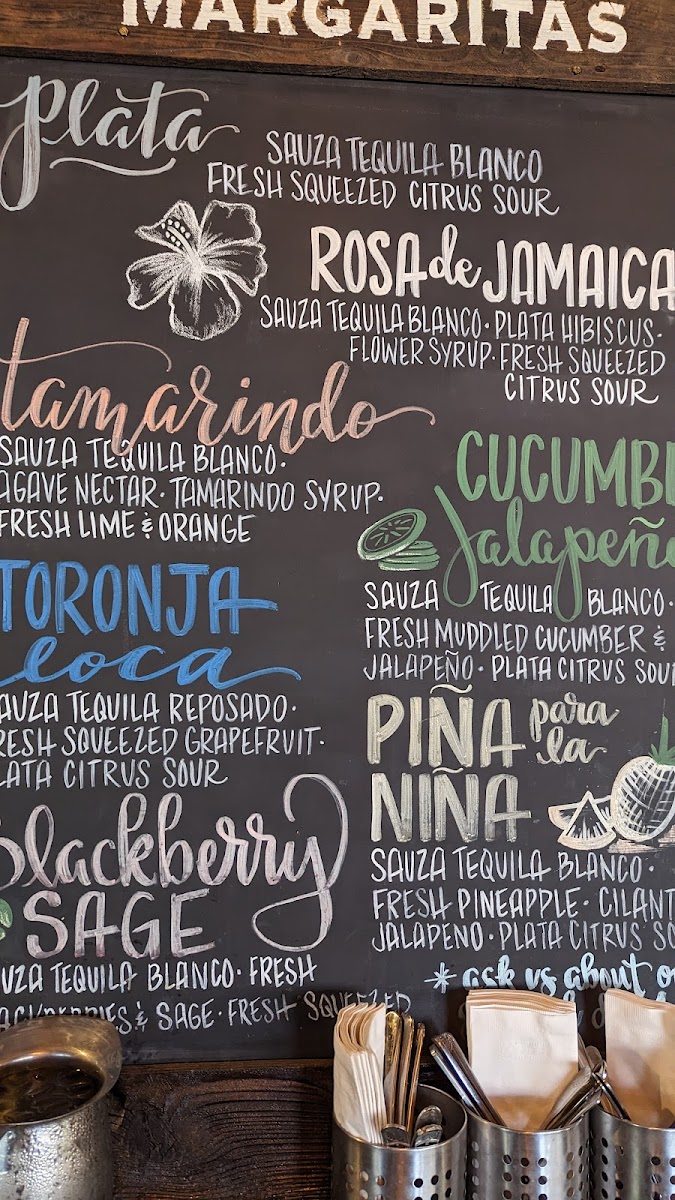 MARGARITAS
Plata
SAUZA TEQUILA BLANCO
FRESH SQUEEZED CITRUS SOUR
ROSA de JAMAICA
SAUZA TEQUILA BLANCO · PLATA HIBISCUS ·
FLOWER SYRUP · FRESH SQUEEZED
CITRUS SOUR
tamarindo
SAUZA TEQUILA BLANCO ·
AGAVE NECTAR · TAMARINDO SYRUP ·
FRESH LIME & ORANGE
CUCUMBE
Jalapeño
SAUZA TEQUILA BLANCO ·
FRESH MUDDLED CUCUMBER &
JALAPEÑO · PLATA CITRUS SOUR
TORONJA
loca
AUZA TEQUILA REPOSADO ·
RESH SQUEEZED GRAPEFRUIT ·
LATA CITRUS SOUR
PIÑA para la
NIÑA
SAUZA TEQUILA BLANCO ·
FRESH PINEAPPLE · CILANT
JALAPENO · PLATA CITRUS SO
blackberry
SAGE
UZA TEQUILA BLANCO · FRESH
ACKBERRIES & SAGE · FRESH SQUEEZED
* ask us about o